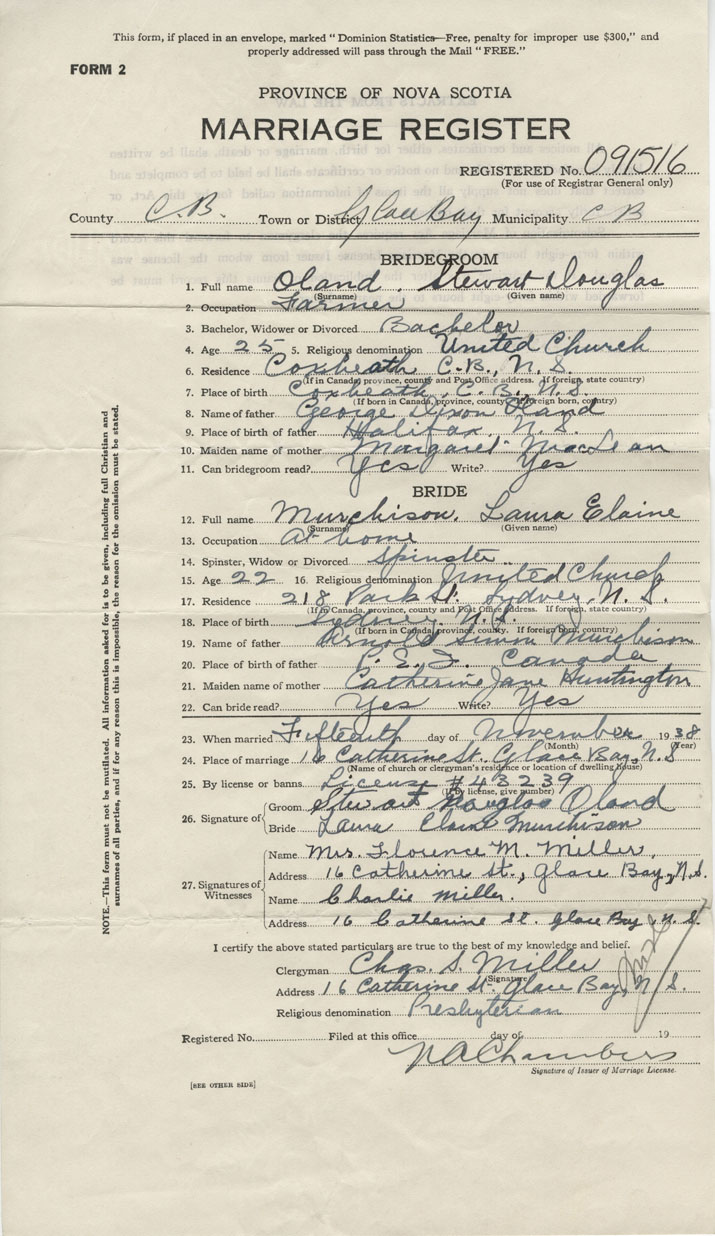 This form, if placed in an envelope, marked "Dominion Statistics—Free, penalty for improper use $300," and
properly addressed will pass through the Mail "FREE."
FORM 2
PROVINCE OF NOVA SCOTIA
MARRIAGE REGISTER
REGISTERED No. 091516
(For use of Registrar General only)
County C.B. Town or District Glace Bay Municipality C B
BRIDEGROOM
1. Full name Oland, Stewart Douglas
(Surname) (Given name)
2. Occupation Farmer
3. Bachelor, Widower or Divorced Bachelor
4. Age 25 5. Religious denomination United Church
6. Residence Coxheath C.B., N.S.
(If in Canada, province, county and Post Office address. If foreign, state country)
7. Place of birth Coxheath, C.B., N.S.
(If born in Canada, province, county. If foreign born, country)
8. Name of father George Dixon Oland
9. Place of birth of father Halifax, N.S.
10. Maiden name of mother Margaret MacLean
11. Can bridegroom read? Yes Write? Yes
BRIDE
12. Full name Murchison, Laura Elaine
(Surname) (Given name)
13. Occupation At home
14. Spinster, Widow or Divorced Spinster
15. Age 22 16. Religious denomination United Church
17. Residence 218 Park St. Sydney, N.S.
(If in Canada, province, county and Post Office address. If foreign, state country)
18. Place of birth Sydney, N.S.
(If born in Canada, province, county. If foreign born, country)
19. Name of father Arnold Simon Murchison
20. Place of birth of father P.E.I. Canada
21. Maiden name of mother Catherine Jane Huntington
22. Can bride read? Yes Write? Yes
23. When married Fifteenth day of November 1938
(Month) (Year)
24. Place of marriage 16 Catherine St. Glace Bay, N.S
(Name of church or clergyman's residence or location of dwelling house)
25. By license or banns License #43239
(If by license, give number)
26. Signature of Groom Stewart Douglas Oland
Bride Laura Elaine Murchison
27. Signatures of Witnesses
Name Mrs. Florence M. Miller,
Address 16 Catherine St., Glace Bay, N.S.
Name Charlie Miller.
Address 16 Catherine St. Glace Bay, N.S.
I certify the above stated particulars are true to the best of my knowledge and belief.
Clergyman Chas. S. Miller
(Signature)
Address 16 Catherine St. Glace Bay, N.S.
Religious denomination Presbyterian
Registered No. Filed at this office day of 19
N A Chambers
Signature of Issuer of Marriage License.
[SEE OTHER SIDE]
NOTE.—This form must not be mutilated. All information asked for is to be given, including full Christian and
surnames of all parties, and if for any reason this is impossible, the reason for the omission must be stated.